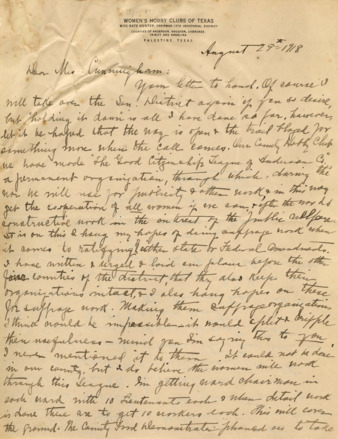 WOMEN'S HOBBY CLUBS OF TEXAS
MISS KATE HUNTER, CHAIRMAN 13TH SENATORIAL DISTRICT
COUNTIES OF ANDERSON, HOUSTON,
TRINITY AND ANGELINA
PALESTINE, TEXAS
August 29th 1918
Dear Mrs Cunningham:
Your letter to hand. Of course I
will take over the Sen. District again if you so desire,
but holding it down is all I have done so far, however,
let it be hoped that the way is open & the trail blazed for
something more when the call comes. Our County Hobby Club
we have made "The Good Citizenship League of Anderson Co."
a permanent organization, through which during the
war we will use for publicity & other work, & in this way
get the cooperation of all women if we can, after the war do
constructive work in the interest of the public welfare
It is on this I hang my hopes of doing suffrage work when
it comes to ratifying either State or Federal Amendments.
I have written & urged & laid our plans before the other
counties of the district, that they also keep their
organizations intact, & I also hang hopes on these
for suffrage work. Making them suffrage organizations
I think would be impossible – it would split & cripple
their usefulness – mind you I'm saying this to you,
I never mentioned it to them. It could not be done
in our county, but I do believe the women will work
through this League. I'm getting ward chairman in
each ward with 10 Lieutenants each & when detail work
is done these are to get 10 workers each. This will cover
the ground. The County Food Demonstrator phoned me to take